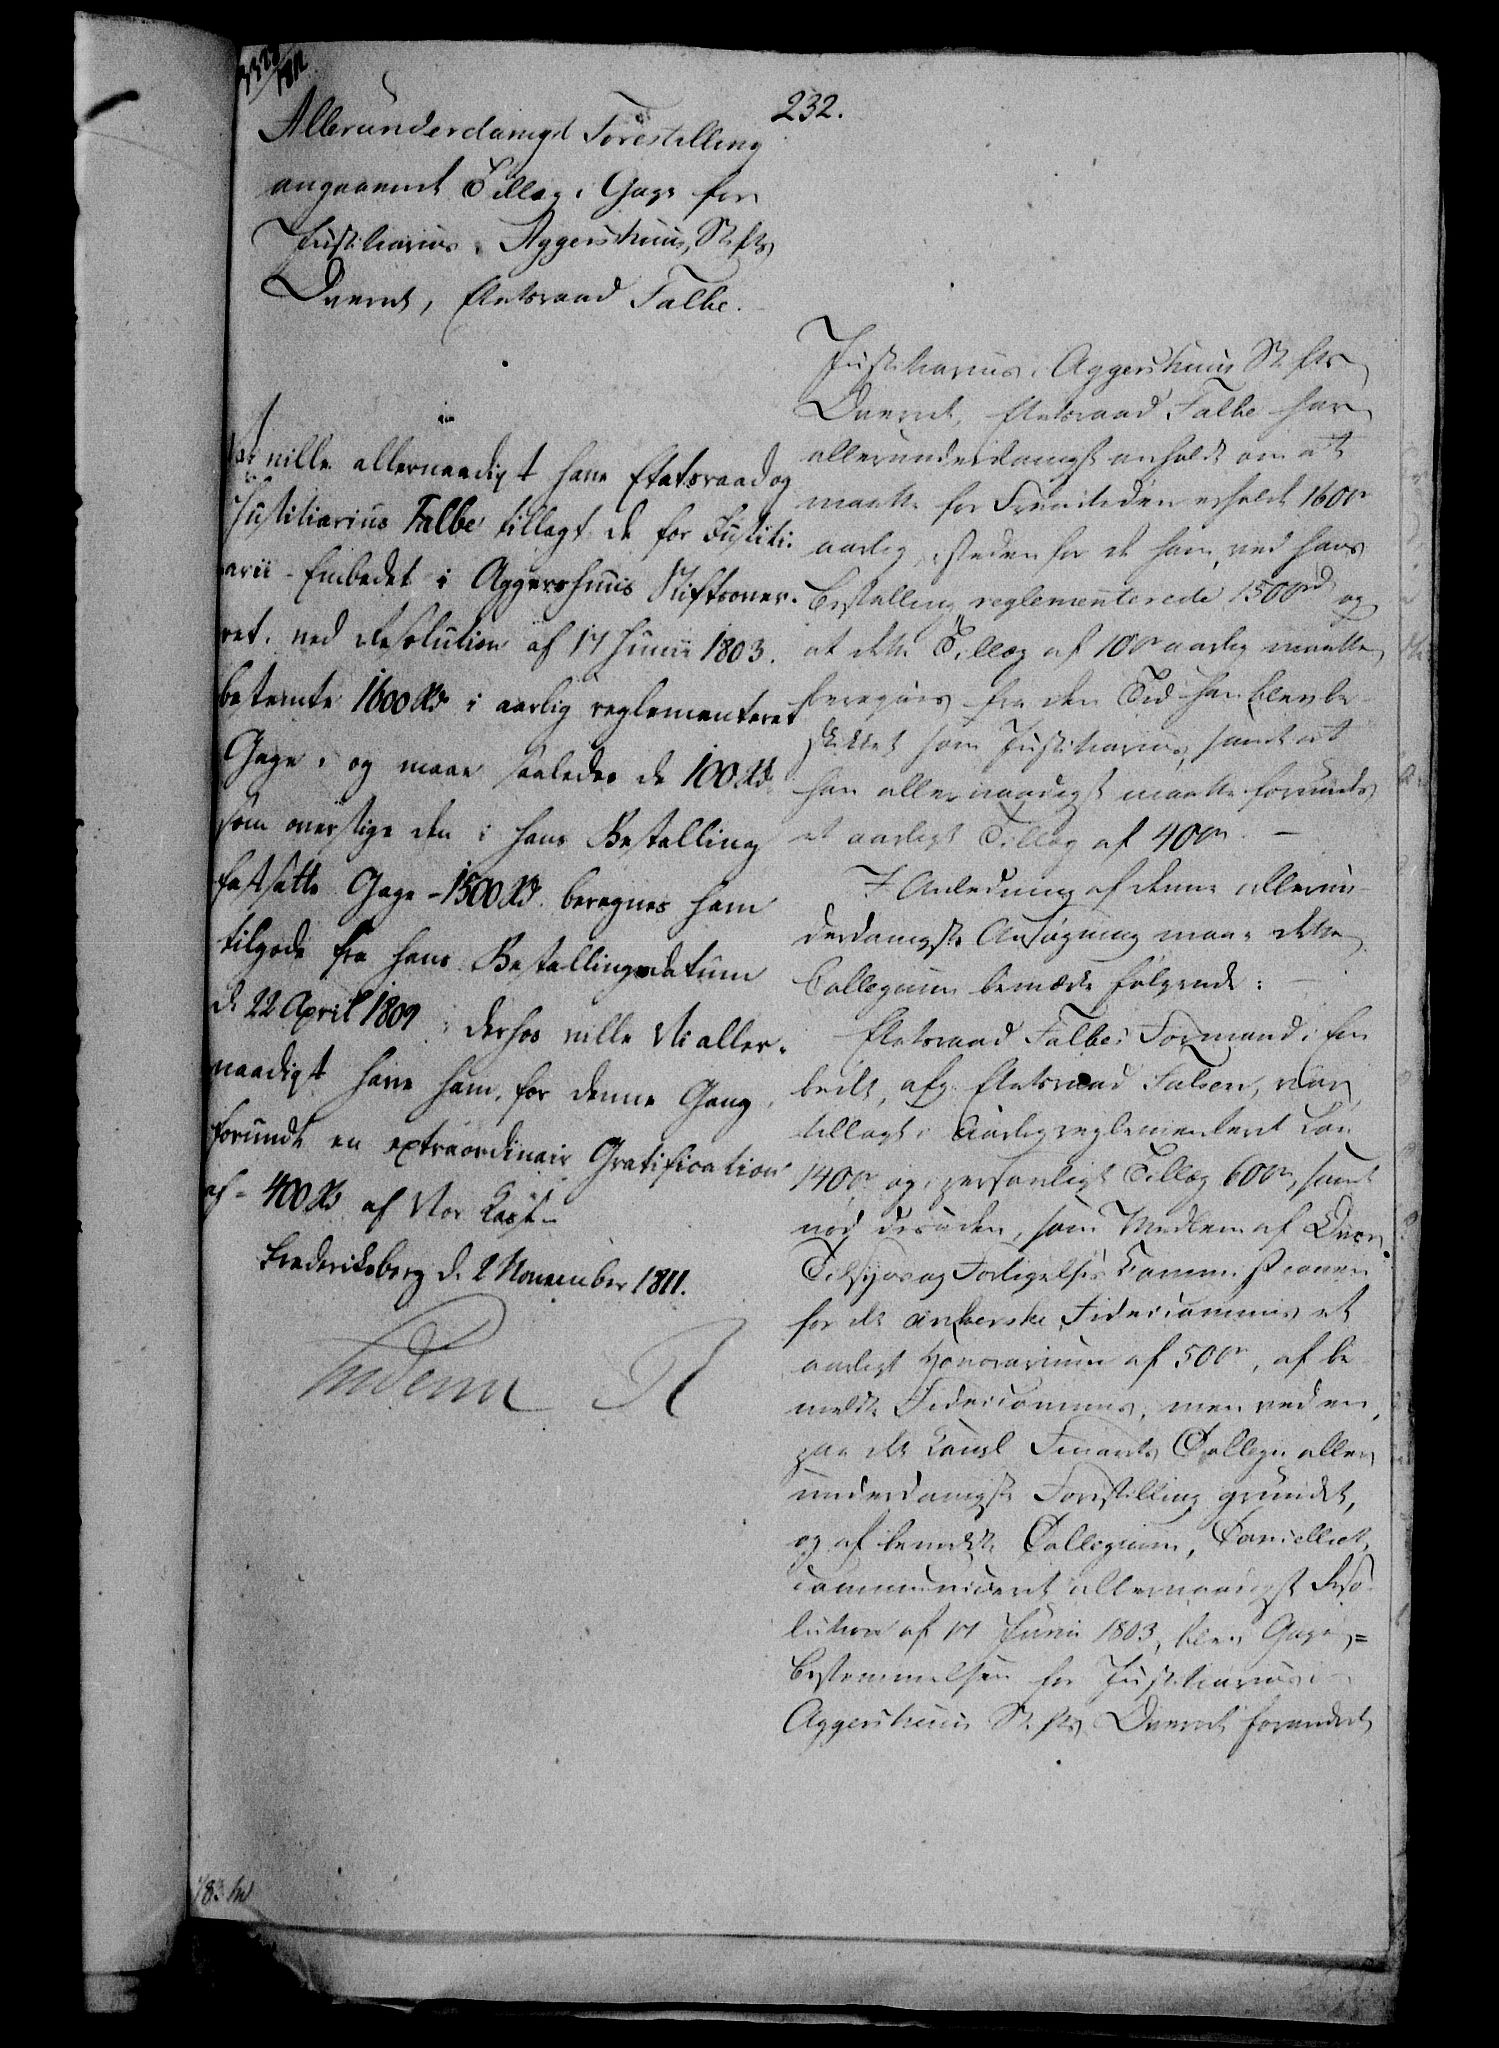 232.
Allerunderdanigst Forestilling
angaaende Tillæg i Gage for
Justitiarius i Aggershuus Stifts
Overret, Etatsraad Falbe.
Vi ville allernaadigst have Etatsraad og
Justitiarius Falbe tillagt de for Justiti-
arii-Embedet i Aggershuus Stiftsover-
ret ved Resolution af 17 Junii 1803.
bestemte 1600 Rd i aarlig reglementeret
Gage, og maae saaledes de 100 Rd
som overstige den i hans Bestalling
fastsatte Gage 1500 Rd. beregnes ham
tilgode fra hans Bestallingsdatum
d. 22 April 1809; derhos ville Vi aller-
naadigst have ham, for denne Gang,
forundt en extraordinair Gratification
af 400 Rd af Vor Kasse
Frederiksberg d. 2 November 1811.
Frederik R
Justitiarius i Aggershuus Stifts
Overret, Etatsraad Falbe har
allerunderdanigst anholdt om at
maatte for Fremtiden erholde 1600 r
aarlig, istedenfor de ham ved hans
Bestalling reglementerede 1500 rd og
at dette Tillæg af 100 r aarlig maatte
beregnes fra den Tid han blev be-
skikket som Justitiarius, samt at
han allernaadigst maatte forundes
et aarligt Tillæg af 400 r. —
I Anledning af denne allerun-
derdanigste Ansøgning maae dette
Collegium bemærke følgende:
Etatsraad Falbes Formand i Em-
bedet, afg. Etatsraad Falsen, var
tillagt i aarlig reglementeret Løn
1400 r og i personligt Tillæg 600 r, samt
nød desuden, som Medlem af Over-
Tilsyns og Forligelses Commissionen
for det ankerske Fideicommis et
aarligt Honorarium af 500 r, af be-
meldte Fideicommis, men ved en,
paa det Kongl Finants Collegii aller
underdanigste Forestilling grundet,
og af bemeldte Collegium, Cancelliet
communiceret allernaadigst Reso-
lution af 17 Junii 1803, blev Gage-
Bestemmelsen for Justitiarius i
Aggershuus Stifts Overret forandret